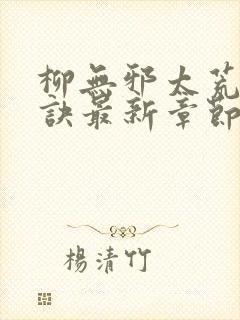 柳無邪太荒
訣最新章節
楊清竹